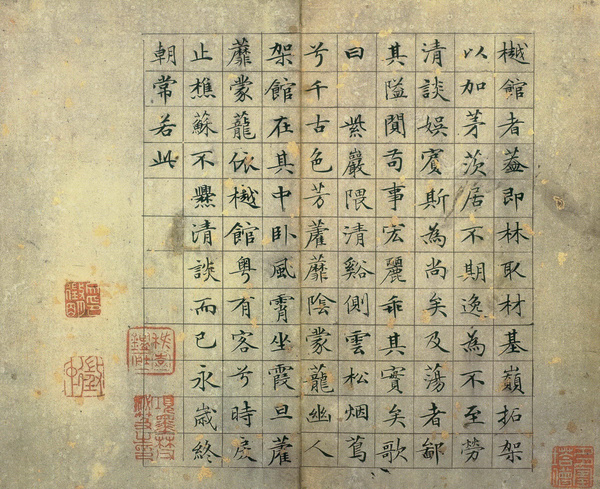 樾館者蓋即林取材基嶺拓架
以加茅茨居不期逸為不至勞
清談娛賓斯為尚矣及蕩者鄙
其隘閴苟事宏麗乖其實矣歌
曰 紫巖隈清谿側雲松烟蔦
兮千古色芳藿蘼陰蒙蘢幽人
架館在其中卧風霄坐霞旦藿
蘼蒙蘢依樾館粵有客兮時戾
止樵蘇不爨清談而已永歲終
朝常若此